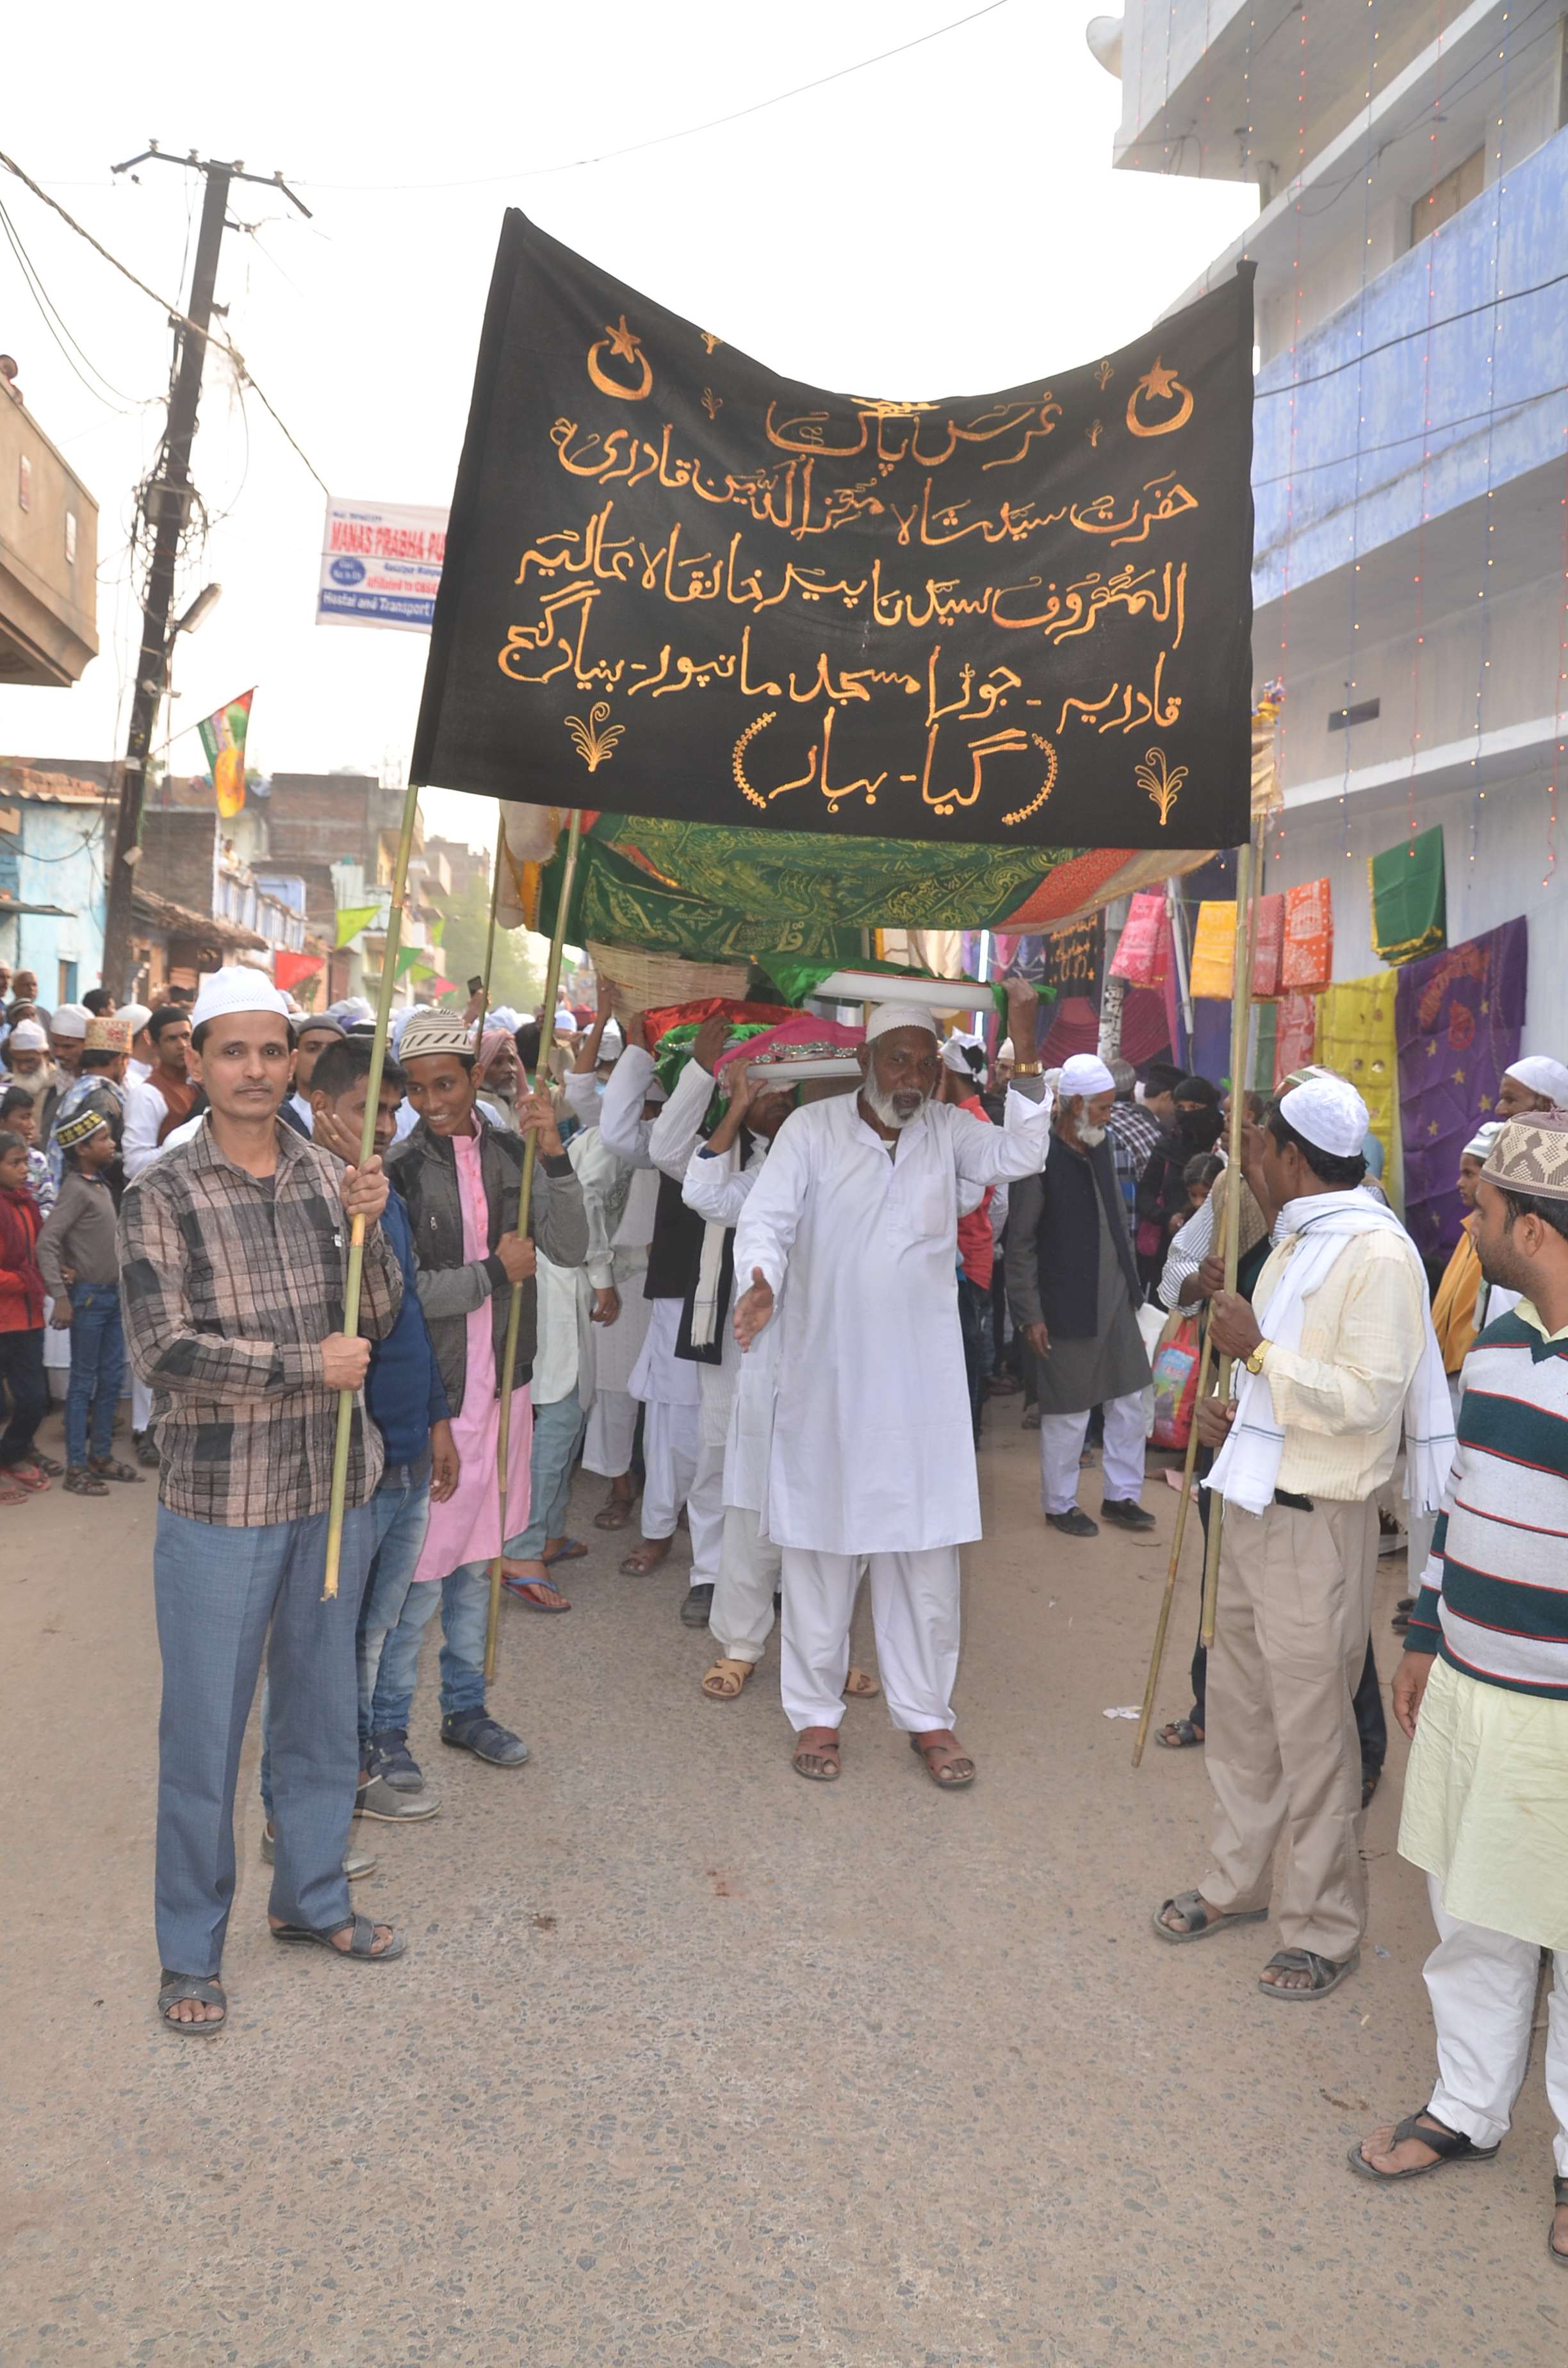 عرس پاک
حضرت سیّد شاہ معز الدّین قادری
المعروف سیّدنا پیر خانقاہ عمالیہ
قادریہ - جوڑا مسجد مانپور - بنیادگنج
(گیا - بہار)
MANAS PRABHA PU
Affiliated to CBSE
Hostel and Transport